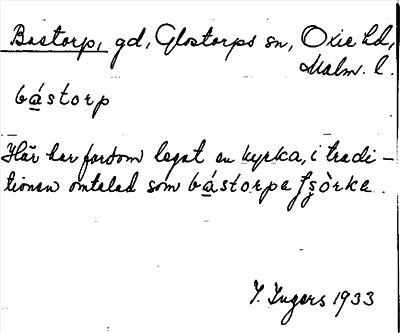 Bastorp, gd, Glostorps sn, Oxie hd,
Malm. l.
bá̲storp
Här har fordom legat en kyrka, i tradi-
tionen omtalad som bá̲storpa fʂòrka.
I. Ingers 1933